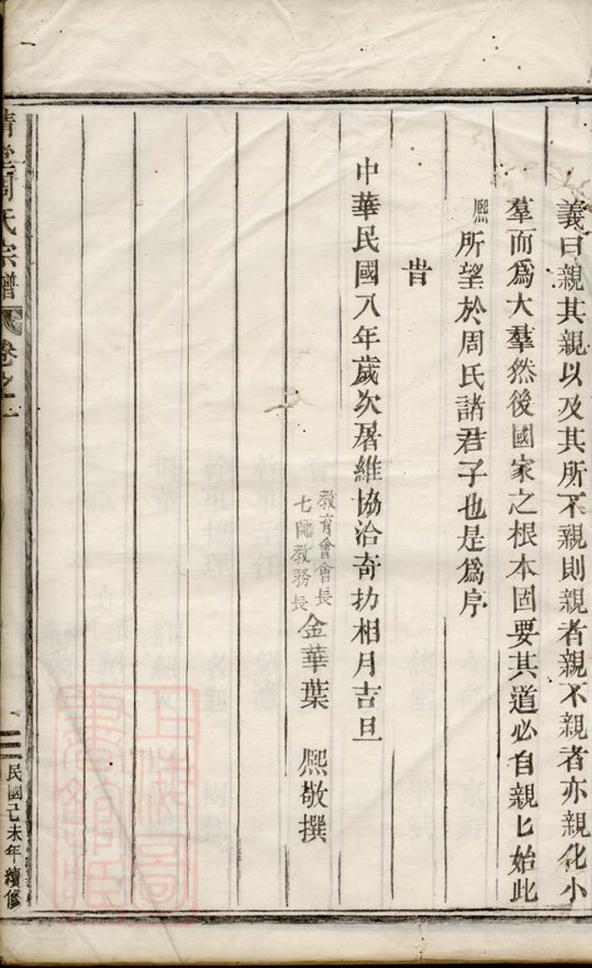 義曰親其親以及其所不親則親者親不親者亦親化小
羣而爲大羣然後國家之根本固要其道必自親匕始此
熈所望於周氏諸君子也是爲序
旹
中華民國八年歲次屠維協洽奇扐相月吉旦
教育會會長
七師教務長
金華葉 熈敬撰
周氏宗譜
卷之一
二
民國己未年續修